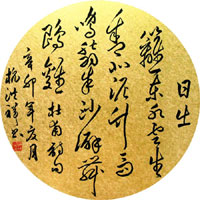 日出
籬東水雲生
舍北泥竹高
鳴翡翠沙僻舞
鵾雞 杜甫詩句
辛卯年夏月